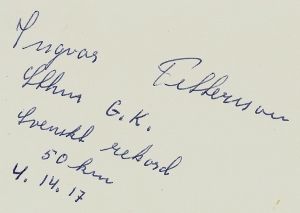 Ingvar Pettersson
Sthlms G.K.
Svenskt rekord
50 km
4.14.17